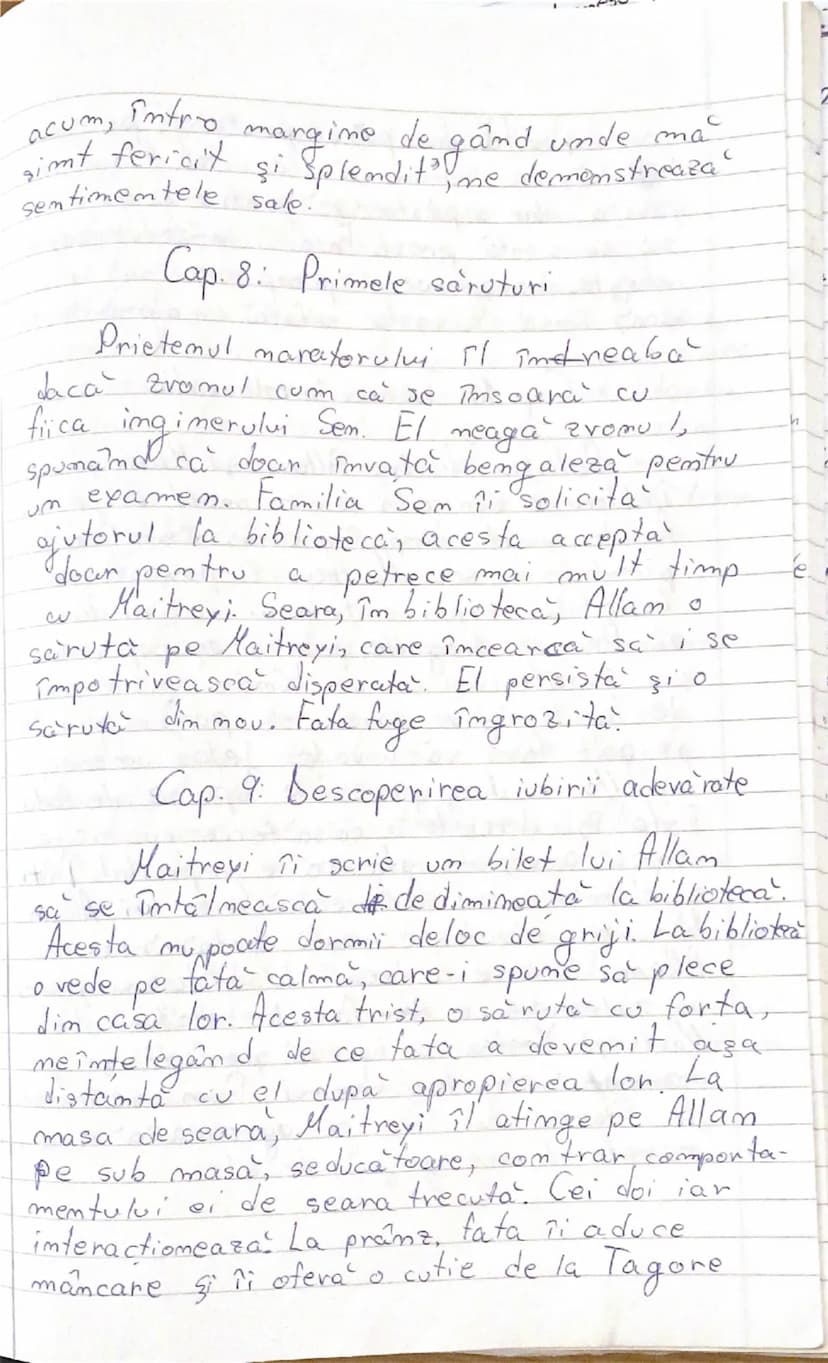 acum, într-o margine de gând unde mă
simt fericit și splendit", ne demonstrează
sentimentele sale.
Cap. 8: Primele săruturi
Prietenul naratorului îl îndreabă
dacă zvonul cum că se însoară cu
fiica inginerului Sen. El neagă zvonul,
spunând că doar învață bengaleză pentru
un examen. Familia Sen îi solicită
ajutorul la bibliotecă, acesta acceptă
doar pentru a petrece mai mult timp
cu Maitreyi. Seara, în bibliotecă, Allan o
sărută pe Maitreyi, care încearcă să i se
împotrivească disperată. El persistă și o
sărută din nou. Fata fuge îngrozită.
Cap. 9: Descoperirea iubirii adevărate
Maitreyi îi scrie un bilet lui Allan
să se întâlnească de dimineață la bibliotecă.
Acesta nu poate dormii deloc de griji. La bibliotecă
o vede pe fată calmă, care-i spune să plece
din casa lor. Acesta trist, o sărută cu forța,
neînțelegând de ce fata a devenit așa
distantă cu el după apropierea lor. La
masa de seară, Maitreyi îl atinge pe Allan
pe sub masă, seducătoare, contrar comporta-
mentului ei de seara trecută. Cei doi iar
interacționează. La prânz, fata îi aduce
mâncare și îi oferă o cutie de la Tagore